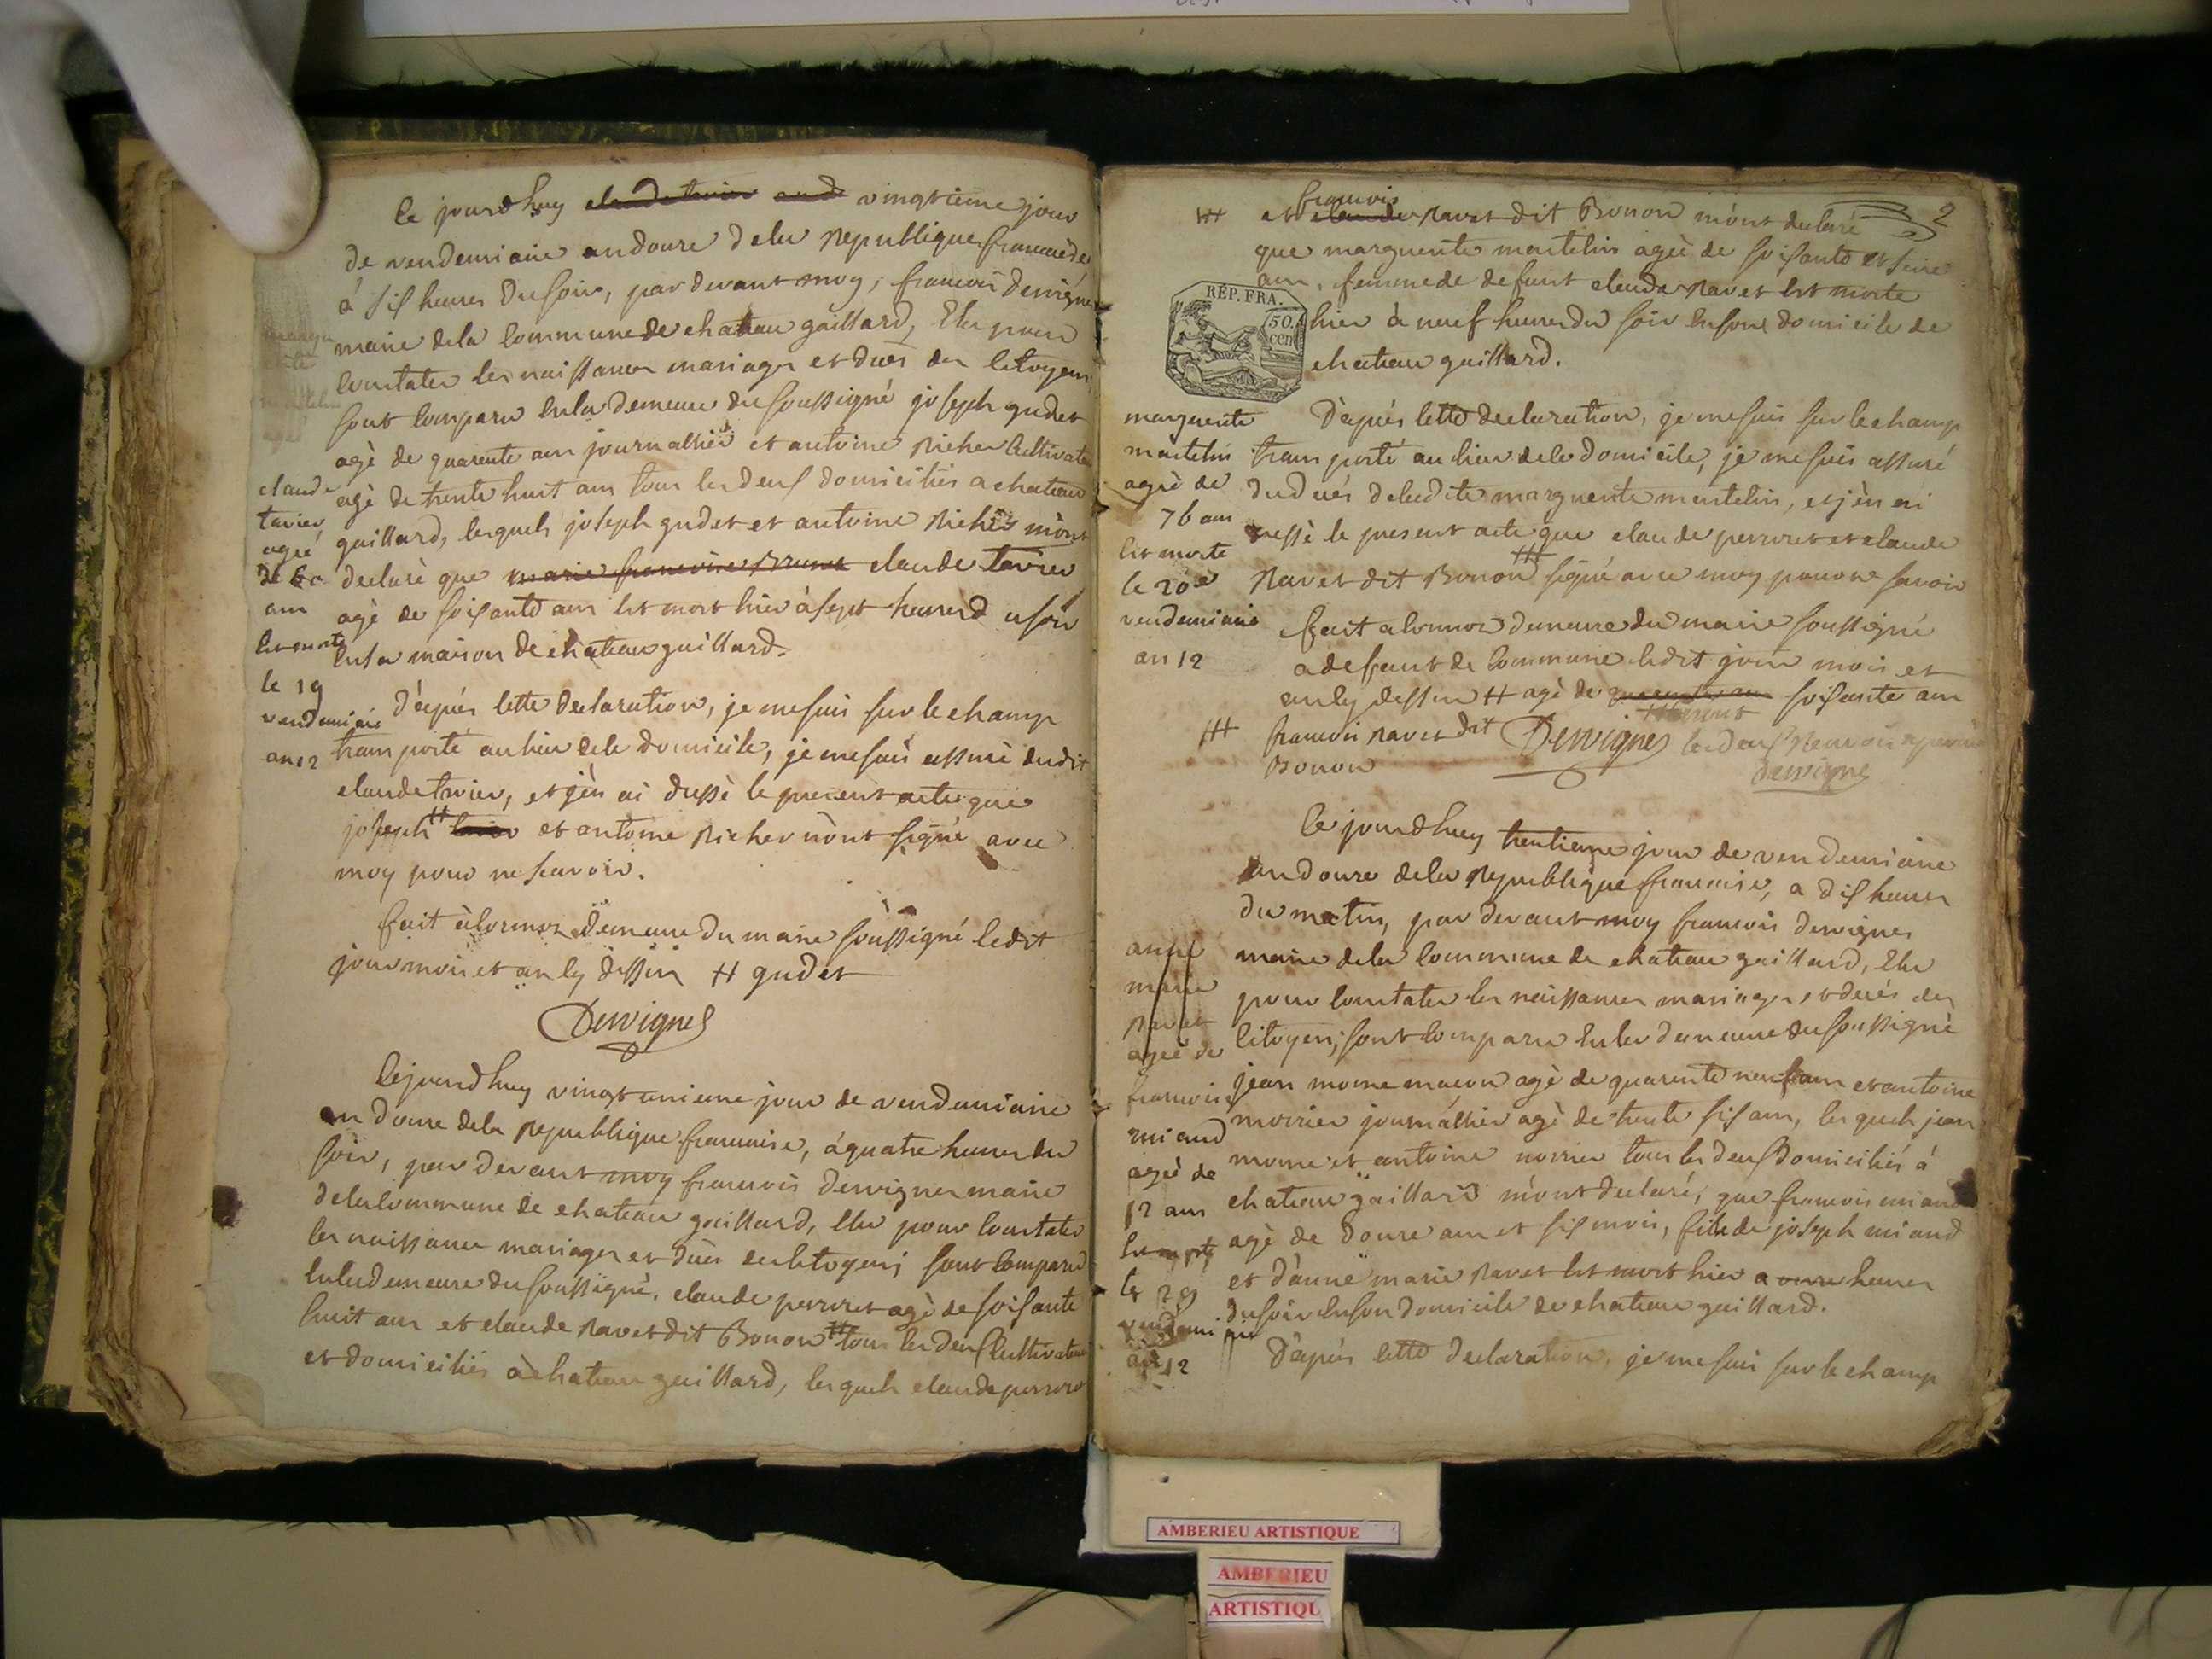 Ce jourdhuy claude tavier and vingtieme jour
de vendemiaire an douze dela Republique francaise
à six heures du soir, par devant moy, francois dervignes
maire dela Commune de chateau gaillard, Elu pour
Constater les naissances mariages et déces des Citoyens,
sont comparu enla demeure du soussigné joseph gudet
agé de quarente ans journallier et antoine Richer Cultivate
agé de trente huit ans tous les deux domiciliés a chateau
gaillard, lesquels joseph gudet et antoine Richer m'ont
declaré que marie francoise Brunet claude tavier
agé de soixante ans est mort hier à sept heures du soir
ensa maison de chateau gaillard.
claude
tavier
agé
de 60
ans
est mort
le 19
vendemiaire
an 12
D'après cette declaration, je mesuis sur le champ
transporté au lieu dele domicile, je mesuis assuré dudit
claude tavier, et j'en ai dressé le present acte que
joseph # tavier et antoine Richer n'ont signé avec
moy pour ne savoir.
fait à Cormoz demeure du maire soussigné ledit
jour mois et an cy dessus # gudet
Dervignes
Cejourdhuy vingt unieme jour de vendemiaire
an douze dela Republique francaise, à quatre heures du
soir, par devant moy francois dervignes maire
dela Commune de chateau gaillard, Elu pour Constater
les naissances mariages et déces des Citoyens sont comparu
enla demeure du soussigné, claude perroret agé de soixante
huit ans et claude Ravet dit Bonon # tous les deux Cultivateurs
et domiciliés à chateau gaillard, lesquels claude perroret
2
francois
# et claude Ravet dit Bonon m'ont declaré
que marguerite martelin agée de soixante et seize
ans, femme de defunt claude Ravet est morte
hier à neuf heures du soir enson domicile de
chateau gaillard.
RÉP. FRA.
50.
CEN
marguerite
martelin
agée de
76 ans
est morte
le 20e
vendemiaire
an 12
D'après cette declaration, je mesuis sur le champ
transporté au lieu dele domicile, je mesuis assuré
du décés deladite marguerite martelin, et j'en ai
dressé le present acte que claude perroret et claude
Ravet dit Bonon # signé avec moy pour ne savoir
fait a Cormoz demeure du maire soussigné
a defaut de Commune ledit jour mois et
an cy dessus # agé de quarente ans soixante ans
# francois Ravet dit
Bonon
Dervignes
les deux Renvois approuvé
dervignes
Ce jourdhuy trentieme jour de vendemiaire
an douze dela Republique francaise, a dix heures
du matin, par devant moy francois dervignes
maire dela Commune de chateau gaillard, Elu
pour Constater les naissances mariages et décés des
Citoyens, sont comparu enla demeure du soussigné
jean moine maçon agé de quarente neuf ans et antoine
morrier journallier agé de trente six ans, lesquels jean
moine et antoine morrier tous les deux domiciliés à
chateau gaillard m'ont declaré, que francois miand
agé de douze ans et six mois, fils de joseph miand
et d'anne marie Ravet est mort hier a onze heures
du soir enson domicile de chateau gaillard.
anne
marie
Ravet
agée de
francois
miand
agé de
12 ans
est mort
le 29
vendemiaire
an 12
D'après cette declaration, je mesuis sur le champ
AMBERIEU ARTISTIQUE
AMBERIEU
ARTISTIQU